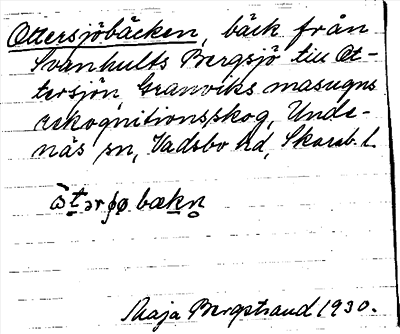 Ottersjöbäcken, bäck från
Svanhults Bergsjö till Ot-
tersjön, Granviks masugns
rekognitionsskog, Unde-
näs sn, Vadsbo hd, Skarab. l.
ò̀t̲ərʃø̨bæk̲n̥
Maja Bergstrand 1930.